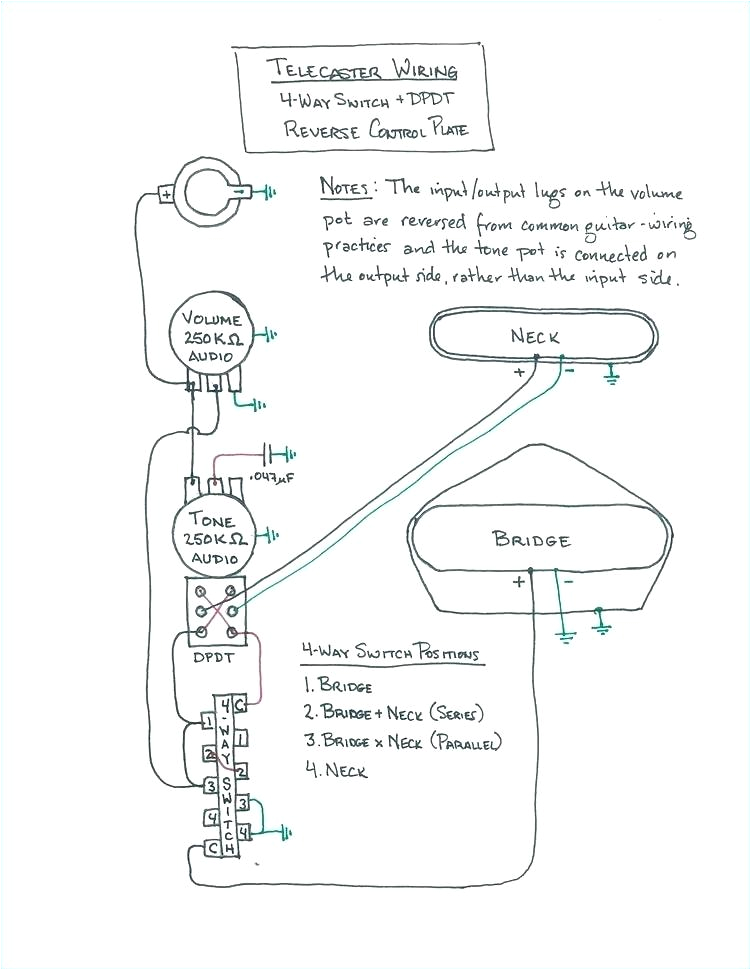 TELECASTER WIRING
4-WAY SWITCH + DPDT
REVERSE CONTROL PLATE
NOTES: The input/output lugs on the volume
pot are reversed from common guitar-wiring
practices and the tone pot is connected on
the output side, rather than the input side.
+
VOLUME
250KΩ
AUDIO
NECK
+ -
.047µF
TONE
250KΩ
AUDIO
BRIDGE
+ -
DPDT
4-WAY SWITCH POSITIONS
1. BRIDGE
2. BRIDGE + NECK (SERIES)
3. BRIDGE x NECK (PARALLEL)
4. NECK
4-WAY SWITCH
C
1
1
2
2
3
3
4
4
C